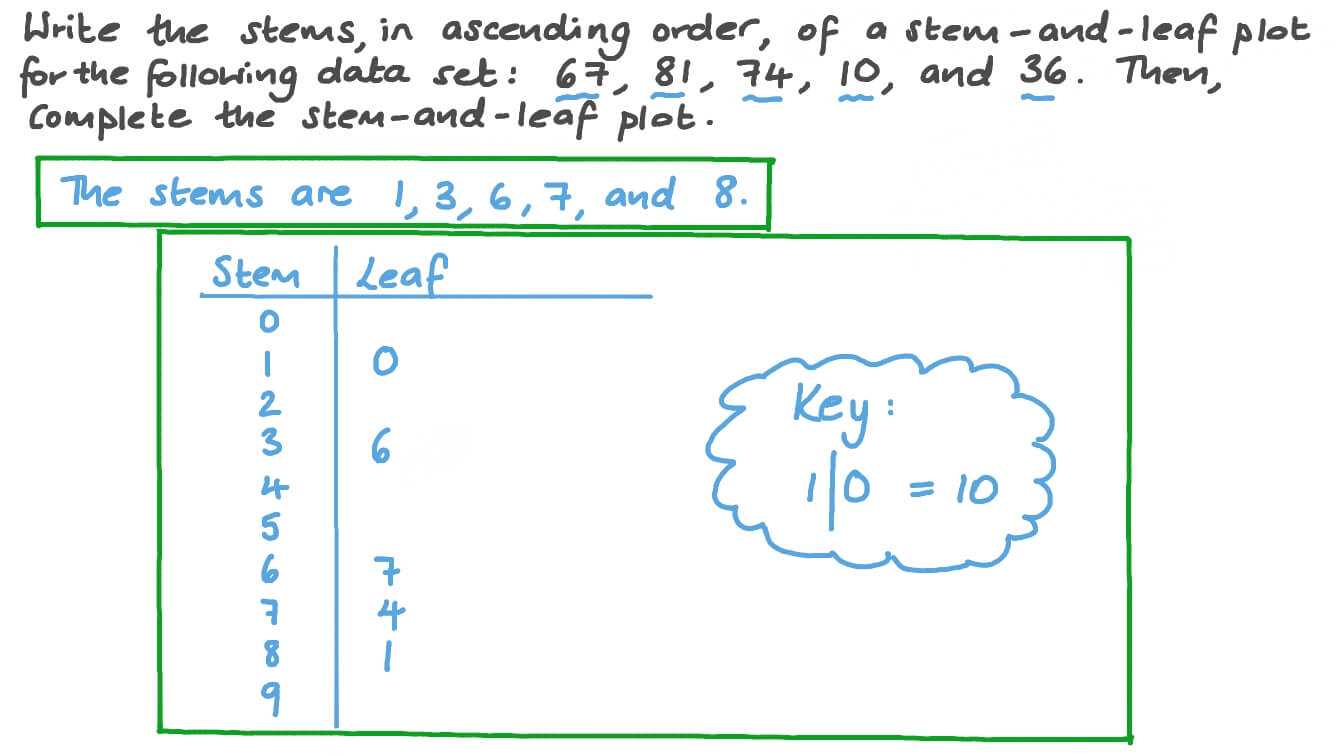 Write the stems, in ascending order, of a stem-and-leaf plot
for the following data set: 67, 81, 74, 10, and 36. Then,
Complete the stem-and-leaf plot.
The stems are 1, 3, 6, 7, and 8.
Stem | Leaf
0 |
1 | 0
2 |
3 | 6
4 |
5 |
6 | 7
7 | 4
8 | 1
9 |
Key:
1|0 = 10